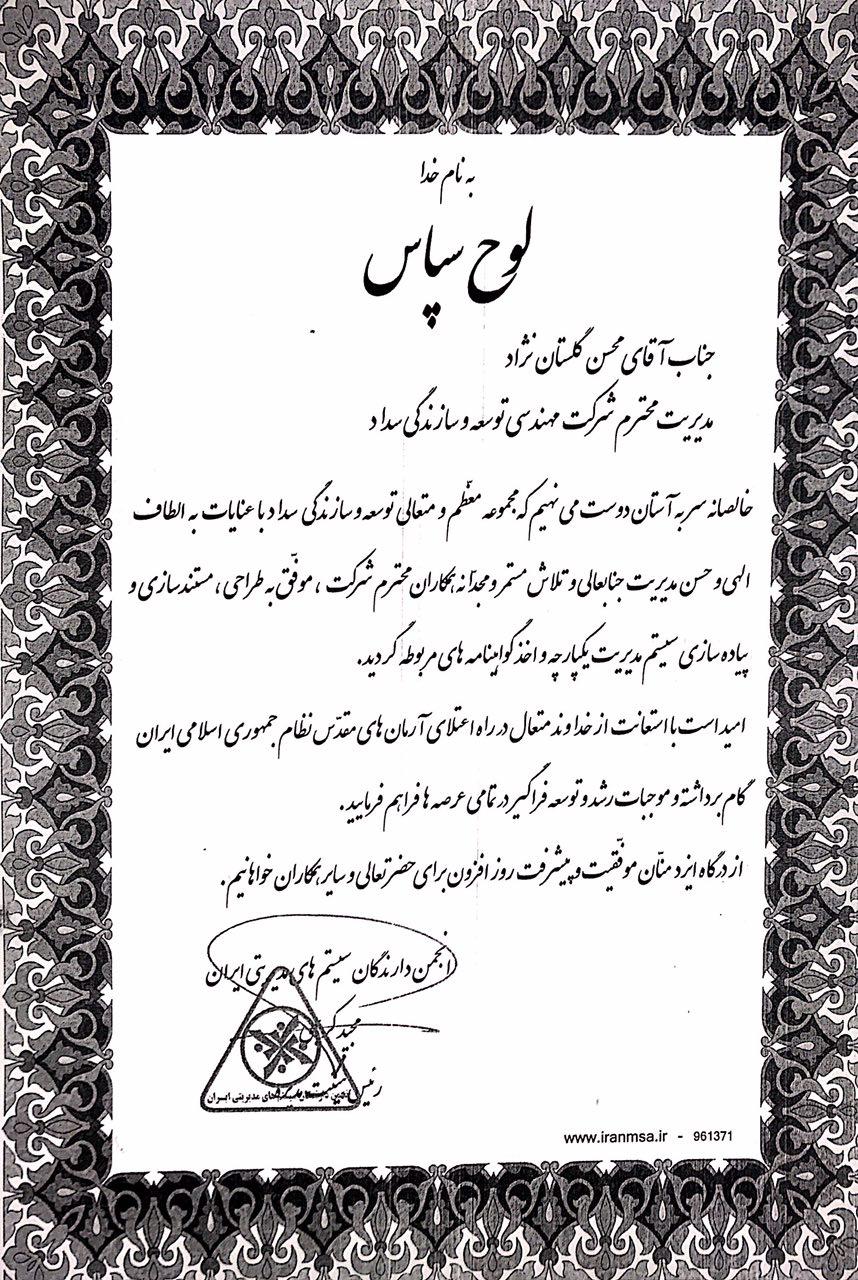 به نام خدا
لوح سپاس
جناب آقای محسن گلستان نژاد
مدیریت محترم شرکت مهندسی توسعه و سازندگی سداد
خالصانه سر به آستان دوست می نهیم که مجموعه معظّم و متعالی توسعه و سازندگی سداد با عنایات به الطاف
الهی و حسن مدیریت جنابعالی و تلاش مستمر و مجدّانه همکاران محترم شرکت ، موفّق به طراحی ، مستندسازی و
پیاده سازی سیستم مدیریت یکپارچه و اخذ گواهینامه های مربوطه گردید.
امید است با استعانت از خداوند متعال در راه اعتلای آرمان های مقدّس نظام جمهوری اسلامی ایران
گام برداشته و موجبات رشد و توسعه فراگیر در تمامی عرصه ها فراهم فرمایید.
از درگاه ایزد منّان موفّقیت و پیشرفت روز افزون برای حضرتعالی و سایر همکاران خواهانیم.
انجمن دارندگان سیستم های مدیریتی ایران
مجید
رئیس
های مدیریتی ایران
www.iranmsa.ir - 961371